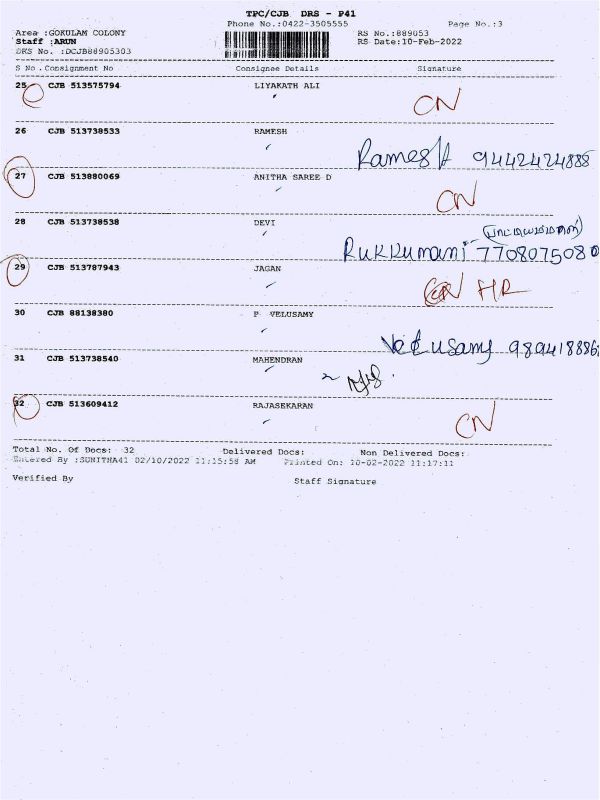 TPC/CJB DRS - P41
Phone No.:0422-3505555 Page No.:3
Area :GOKULAM COLONY RS No.:889053
Staff :ARUN RS Date:10-Feb-2022
DRS No. :DCJB88905303
S No. Consignment No Consignee Details Signature
25 CJB 513575794 LIYAKATH ALI
CN
26 CJB 513738533 RAMESH
Ramesh 9442424888
27 CJB 513880069 ANITHA SAREE D
CN
28 CJB 513738538 DEVI
Rukkumani 7708075080
29 CJB 513787943 JAGAN
CN HR
30 CJB 88138380 P VELUSAMY
Velusamy
31 CJB 513738540 MAHENDRAN
32 CJB 513609412 RAJASEKARAN
CN
Total No. Of Docs: 32 Delivered Docs: Non Delivered Docs:
Entered By :SUNITHA41 02/10/2022 11:15:58 AM Printed On: 10-02-2022 11:17:11
Verified By Staff Signature